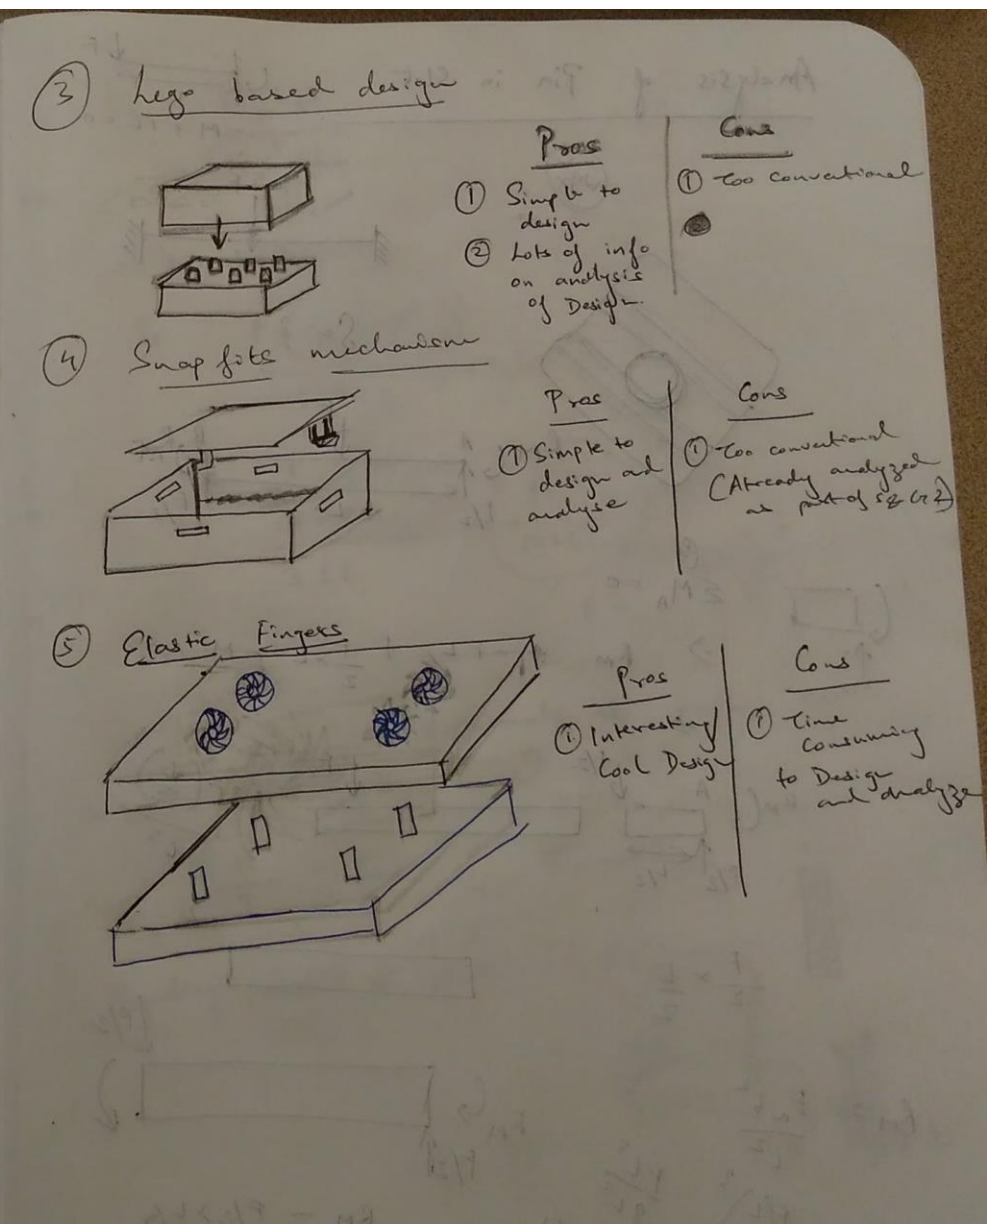 ③ Lego based design
Pros
① Simple to
design
② Lots of info
on analysis
of Design.
Cons
① Too conventional
④ Snap fits mechanism
Pros
① Simple to
design and
analyse
Cons
① Too conventional
(Already analyzed
as part of
⑤ Elastic Fingers
Pros
① Interesting/
Cool Design
Cons
① Time
Consuming
to Design
and analyze